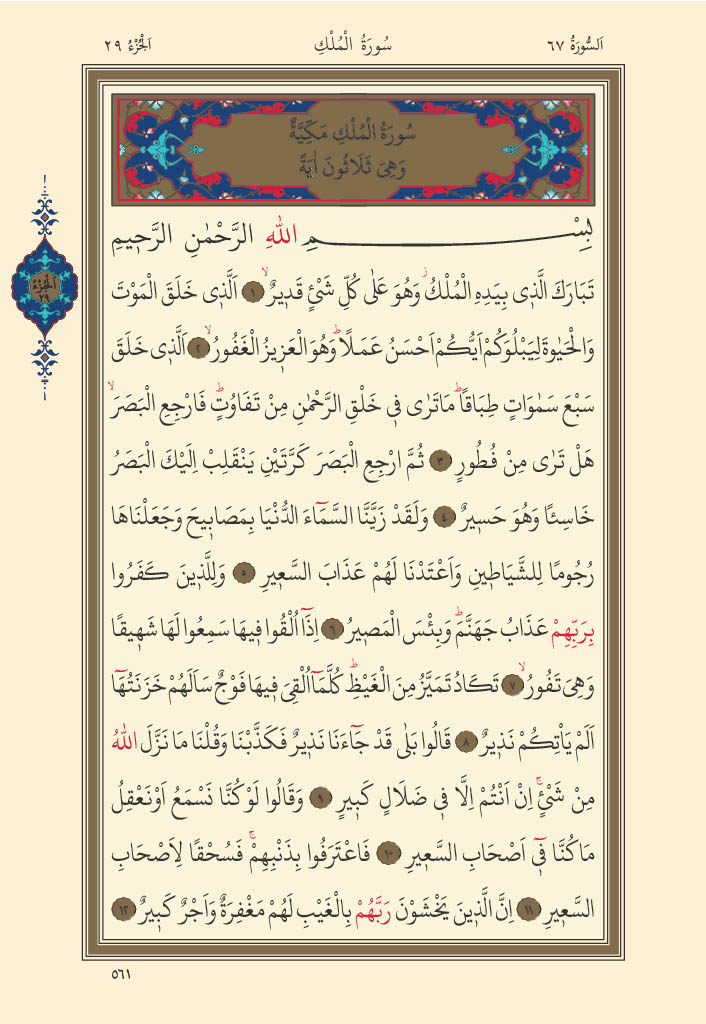 اَلسُّورَةُ ٦٧
سُورَةُ الْمُلْكِ
اَلْجُزْءُ ٢٩
سُورَةُ الْمُلْكِ مَكِّيَّةٌ
وَهِيَ ثَلَاثُونَ اٰيَةً
اَلْجُزْءُ
٢٩
بِسْمِ اللّٰهِ الرَّحْمٰنِ الرَّح۪يمِ
تَبَارَكَ الَّذ۪ي بِيَدِهِ الْمُلْكُۘ وَهُوَ عَلٰى كُلِّ شَيْءٍ قَد۪يرٌۙ ١ اَلَّذ۪ي خَلَقَ الْمَوْتَ
وَالْحَيٰوةَ لِيَبْلُوَكُمْ اَيُّكُمْ اَحْسَنُ عَمَلًاۜ وَهُوَ الْعَز۪يزُ الْغَفُورُۙ ٢ اَلَّذ۪ي خَلَقَ
سَبْعَ سَمٰوَاتٍ طِبَاقًاۜ مَا تَرٰى ف۪ي خَلْقِ الرَّحْمٰنِ مِنْ تَفَاوُتٍۜ فَارْجِعِ الْبَصَرَۙ
هَلْ تَرٰى مِنْ فُطُورٍ ٣ ثُمَّ ارْجِعِ الْبَصَرَ كَرَّتَيْنِ يَنْقَلِبْ اِلَيْكَ الْبَصَرُ
خَاسِئًا وَهُوَ حَس۪يرٌ ٤ وَلَقَدْ زَيَّنَّا السَّمَٓاءَ الدُّنْيَا بِمَصَاب۪يحَ وَجَعَلْنَاهَا
رُجُومًا لِلشَّيَاط۪ينِ وَاَعْتَدْنَا لَهُمْ عَذَابَ السَّع۪يرِ ٥ وَلِلَّذ۪ينَ كَفَرُوا
بِرَبِّهِمْ عَذَابُ جَهَنَّمَۜ وَبِئْسَ الْمَص۪يرُ ٦ اِذَٓا اُلْقُوا ف۪يهَا سَمِعُوا لَهَا شَه۪يقًا
وَهِيَ تَفُورُۙ ٧ تَكَادُ تَمَيَّزُ مِنَ الْغَيْظِۜ كُلَّمَٓا اُلْقِيَ ف۪يهَا فَوْجٌ سَاَلَهُمْ خَزَنَتُهَٓا
اَلَمْ يَأْتِكُمْ نَذ۪يرٌ ٨ قَالُوا بَلٰى قَدْ جَٓاءَنَا نَذ۪يرٌ فَكَذَّبْنَا وَقُلْنَا مَا نَزَّلَ اللّٰهُ
مِنْ شَيْءٍۚ اِنْ اَنْتُمْ اِلَّا ف۪ي ضَلَالٍ كَب۪يرٍ ٩ وَقَالُوا لَوْ كُنَّا نَسْمَعُ اَوْ نَعْقِلُ
مَا كُنَّا ف۪ٓي اَصْحَابِ السَّع۪يرِ ١٠ فَاعْتَرَفُوا بِذَنْبِهِمْۚ فَسُحْقًا لِاَصْحَابِ
السَّع۪يرِ ١١ اِنَّ الَّذ۪ينَ يَخْشَوْنَ رَبَّهُمْ بِالْغَيْبِ لَهُمْ مَغْفِرَةٌ وَاَجْرٌ كَب۪يرٌ ١٢
٥٦١